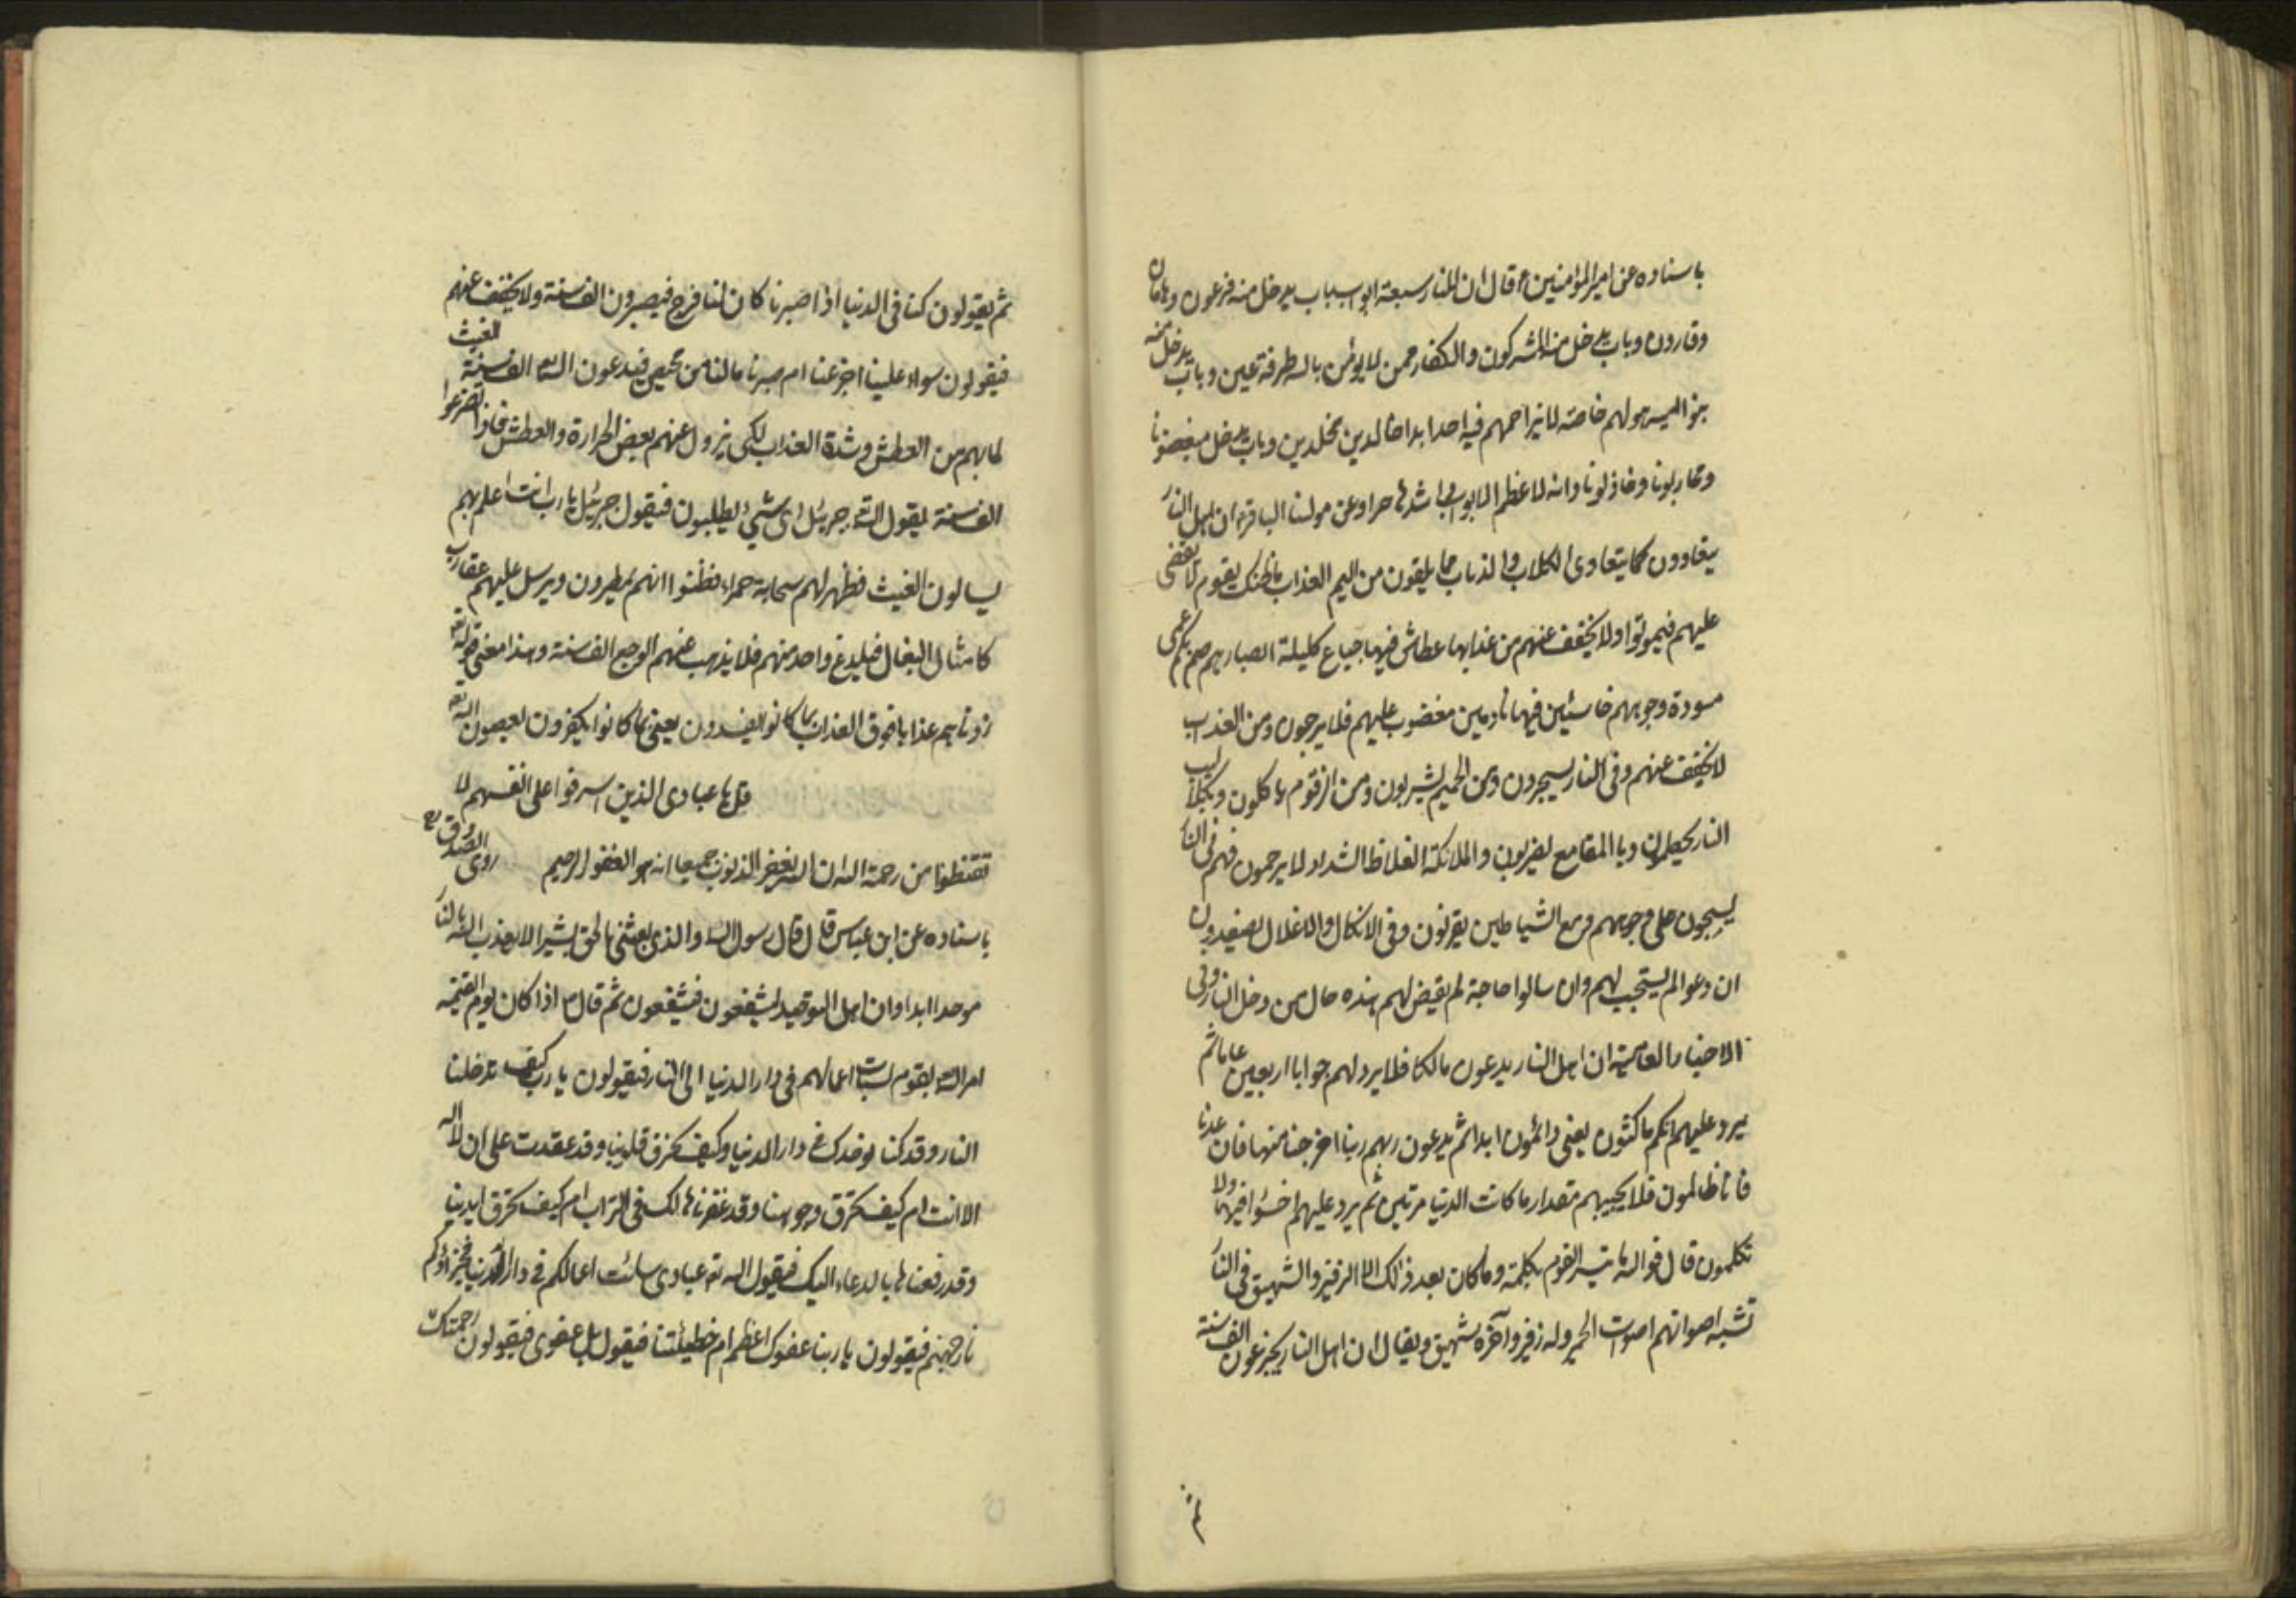 باسناده عن امیر المؤمنین ع قال ان للنار سبعة ابواب باب یدخل منه فرعون وهامان
وقارون وباب یدخل منه المشرکون والکفار ممن لا یؤمن بالله طرفة عین وباب یدخل منه
بنو امیه هو لهم خاصة لا یزاحمهم فیه احد ابدا خالدین مخلدین وباب یدخل مبغضونا
ومحاربونا وخاذلونا وانه لاعظم الابواب واشدها حرا وعن مولینا الباقر ع ان اهل النار
یتعاوون کما یتعاوی الکلاب والذئاب مما یلقون من الیم العذاب ما ظنک بقوم لا یقضی
علیهم فیموتوا ولا یخفف عنهم من عذابها عطاش فیها جیاع کلیلة ابصارهم صم بکم عمی
مسودة وجوههم خاسئین فیها نادمین مغضوب علیهم فلا یرحمون ومن العذاب
لا یخفف عنهم وفی النار یسجرون ومن الحمیم یشربون ومن الزقوم یاکلون وبکلالیب
النار یحطمون وبالمقامع یضربون والملائکة الغلاظ الشداد لا یرحمون فهم فی النار
یسحبون علی وجوههم ومع الشیاطین یقرنون وفی الانکال والاغلال یصفدون
ان دعوا لم یستجب لهم وان سالوا حاجة لم یقض لهم هذه حال من دخل النار وفی
الاخبار العامیة ان اهل النار یدعون مالکا فلا یرد لهم جوابا اربعین عاما ثم
یرد علیهم انکم ماکثون یعنی دائمون ابدا ثم یدعون ربهم ربنا اخرجنا منها فان عدنا
فانا ظالمون فلا یجیبهم مقدار ما کانت الدنیا مرتین ثم یرد علیهم اخسؤا فیها ولا
تکلمون قال فوالله ما ینبس القوم بکلمة وما کان بعد ذلک الا الزفیر والشهیق فی النار
تشبه اصواتهم اصوات الحمیر وله زفیر وآخره شهیق ویقال ان اهل النار یجزعون الف سنة
ثم
ثم یقولون کنا فی الدنیا اذا صبرنا کان لنا فرج فیصبرون الف سنة ولا یخفف عنهم
فیقولون سواء علینا اجزعنا ام صبرنا ما لنا من محیص فیدعون الله الف سنة الغیث
لما بهم من العطش وشدة العذاب لکی یزول عنهم بعض الحرارة والعطش فاذا تضرعوا
الف سنة یقول الله جبرئیل ای شیء یطلبون فیقول جبرئیل یا رب انت اعلم بهم
یسالون الغیث فظهر لهم سحابة حمراء فظنوا انهم یمطرون ویرسل علیهم عقارب
کامثال البغال فیلدغ واحد منهم فلا یذهب عنهم الوجع الف سنة وهذا معنی قوله تع
زدناهم عذابا فوق العذاب بما کانوا یفسدون یعنی بما کانوا یکفرون یعصون الله تع
قل یا عبادی الذین اسرفوا علی انفسهم لا
تقنطوا من رحمة الله ان الله یغفر الذنوب جمیعا انه هو الغفور الرحیم روی الصدوق ره
باسناده عن ابن عباس قال قال رسول الله والذی بعثنی بالحق بشیرا لا یعذب الله بالنار
موحدا ابدا وان اهل التوحید لیشفعون فیشفعون ثم قال ع اذا کان یوم القیمة
امر الله بقوم ساءت اعمالهم فی دار الدنیا الی النار فیقولون یا رب کیف تدخلنا
النار وقد کنا نوحدک فی دار الدنیا وکیف تحرق قلوبنا وقد عقدت علی ان لا اله
الا انت ام کیف تحرق وجوهنا وقد عفرناها لک فی التراب ام کیف تحرق ایدینا
وقد رفعناها بالدعاء الیک فیقول الله تع عبادی ساءت اعمالکم فی دار الدنیا فجزاؤکم
نار جهنم فیقولون یا ربنا عفوک اعظم ام خطیئتنا فیقول بل عفوی فیقولون رحمتک